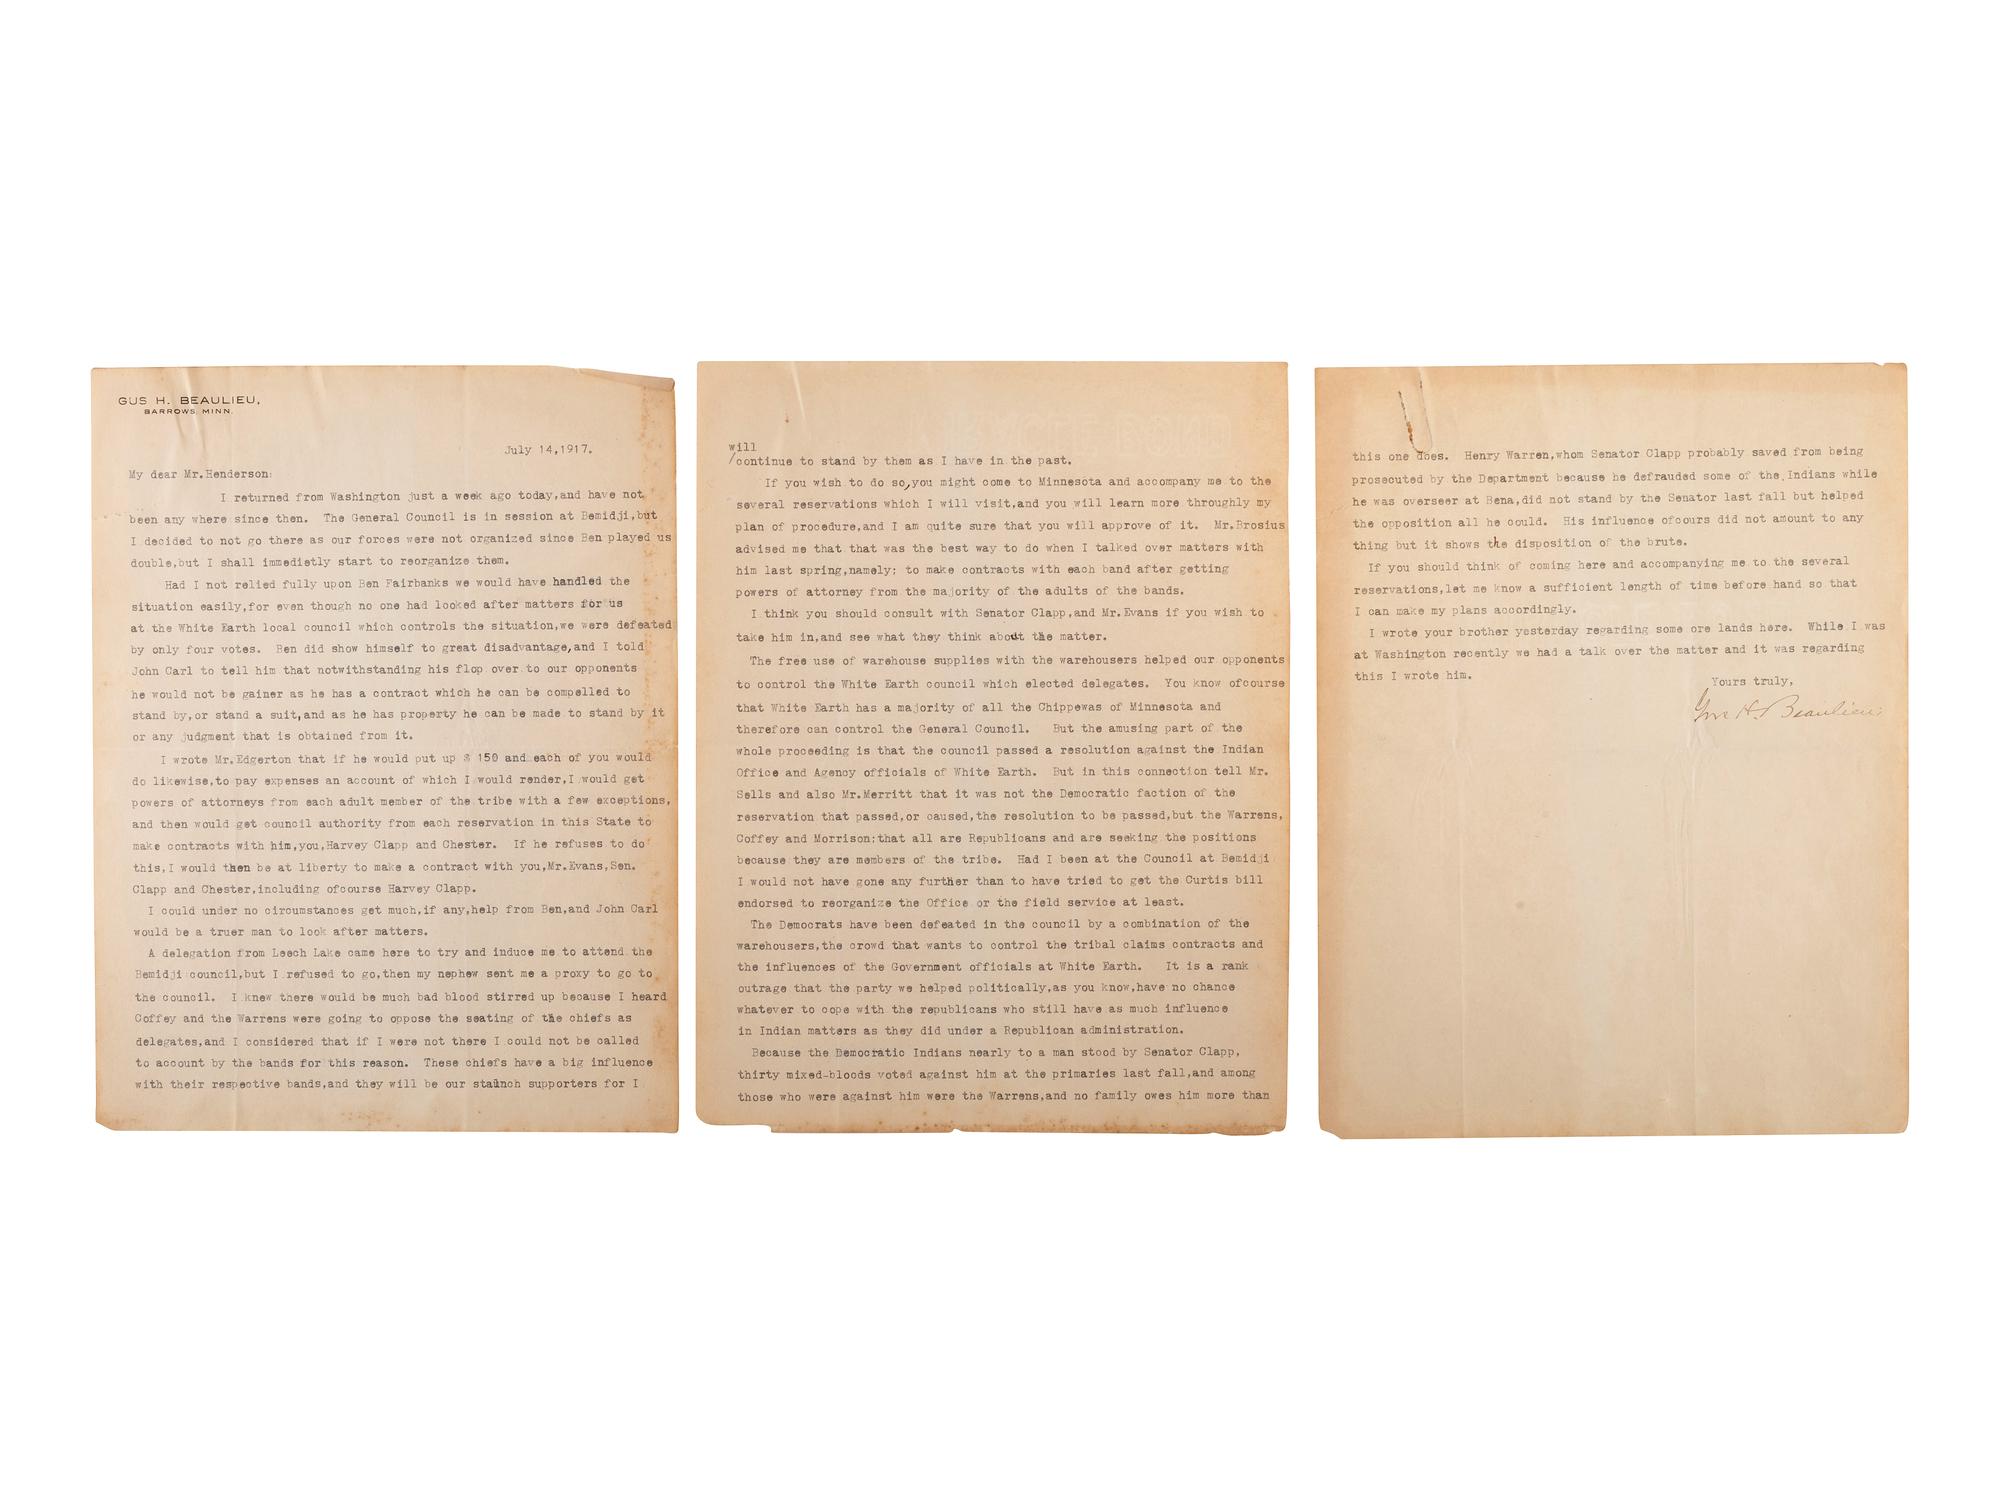 GUS H. BEAULIEU,
BARROWS, MINN.
July 14,1917.
My dear Mr.Henderson:
I returned from Washington just a week ago today,and have not
been any where since then. The General Council is in session at Bemidji,but
I decided to not go there as our forces were not organized since Ben played us
double,but I shall immedietly start to reorganize them.
Had I not relied fully upon Ben Fairbanks we would have handled the
situation easily,for even though no one had looked after matters for us
at the White Earth local council which controls the situation,we were defeated
by only four votes. Ben did show himself to great disadvantage,and I told
John Carl to tell him that notwithstanding his flop over to our opponents
he would not be gainer as he has a contract which he can be compelled to
stand by,or stand a suit,and as he has property he can be made to stand by it
or any judgment that is obtained from it.
I wrote Mr.Edgerton that if he would put up $ 150 and each of you would
do likewise,to pay expenses an account of which I would render,I would get
powers of attorneys from each adult member of the tribe with a few exceptions,
and then would get council authority from each reservation in this State to
make contracts with him,you,Harvey Clapp and Chester. If he refuses to do
this,I would then be at liberty to make a contract with you,Mr.Evans,Sen.
Clapp and Chester,including ofcourse Harvey Clapp.
I could under no circumstances get much,if any,help from Ben,and John Carl
would be a truer man to look after matters.
A delegation from Leech Lake came here to try and induce me to attend the
Bemidji council,but I refused to go,then my nephew sent me a proxy to go to
the council. I knew there would be much bad blood stirred up because I heard
Coffey and the Warrens were going to oppose the seating of the chiefs as
delegates,and I considered that if I were not there I could not be called
to account by the bands for this reason. These chiefs have a big influence
with their respective bands,and they will be our staunch supporters for I
will
continue to stand by them as I have in the past.
If you wish to do so,you might come to Minnesota and accompany me to the
several reservations which I will visit,and you will learn more throughly my
plan of procedure,and I am quite sure that you will approve of it. Mr.Brosius
advised me that that was the best way to do when I talked over matters with
him last spring,namely: to make contracts with each band after getting
powers of attorney from the majority of the adults of the bands.
I think you should consult with Senator Clapp,and Mr.Evans if you wish to
take him in,and see what they think about the matter.
The free use of warehouse supplies with the warehousers helped our opponents
to control the White Earth council which elected delegates. You know ofcourse
that White Earth has a majority of all the Chippewas of Minnesota and
therefore can control the General Council. But the amusing part of the
whole proceeding is that the council passed a resolution against the Indian
Office and Agency officials of White Earth. But in this connection tell Mr.
Sells and also Mr.Merritt that it was not the Democratic faction of the
reservation that passed,or caused,the resolution to be passed,but the Warrens,
Coffey and Morrison:that all are Republicans and are seeking the positions
because they are members of the tribe. Had I been at the Council at Bemidji
I would not have gone any further than to have tried to get the Curtis bill
endorsed to reorganize the Office or the field service at least.
The Democrats have been defeated in the council by a combination of the
warehousers,the crowd that wants to control the tribal claims contracts and
the influences of the Government officials at White Earth. It is a rank
outrage that the party we helped politically,as you know,have no chance
whatever to cope with the republicans who still have as much influence
in Indian matters as they did under a Republican administration.
Because the Democratic Indians nearly to a man stood by Senator Clapp,
thirty mixed-bloods voted against him at the primaries last fall,and among
those who were against him were the Warrens,and no family owes him more than
this one does. Henry Warren,whom Senator Clapp probably saved from being
prosecuted by the Department because he defrauded some of the Indians while
he was overseer at Bena,did not stand by the Senator last fall but helped
the opposition all he could. His influence ofcours did not amount to any
thing but it shows the disposition of the brute.
If you should think of coming here and accompanying me to the several
reservations,let me know a sufficient length of time before hand so that
I can make my plans accordingly.
I wrote your brother yesterday regarding some ore lands here. While I was
at Washington recently we had a talk over the matter and it was regarding
this I wrote him.
Yours truly,
Gus H. Beaulieu